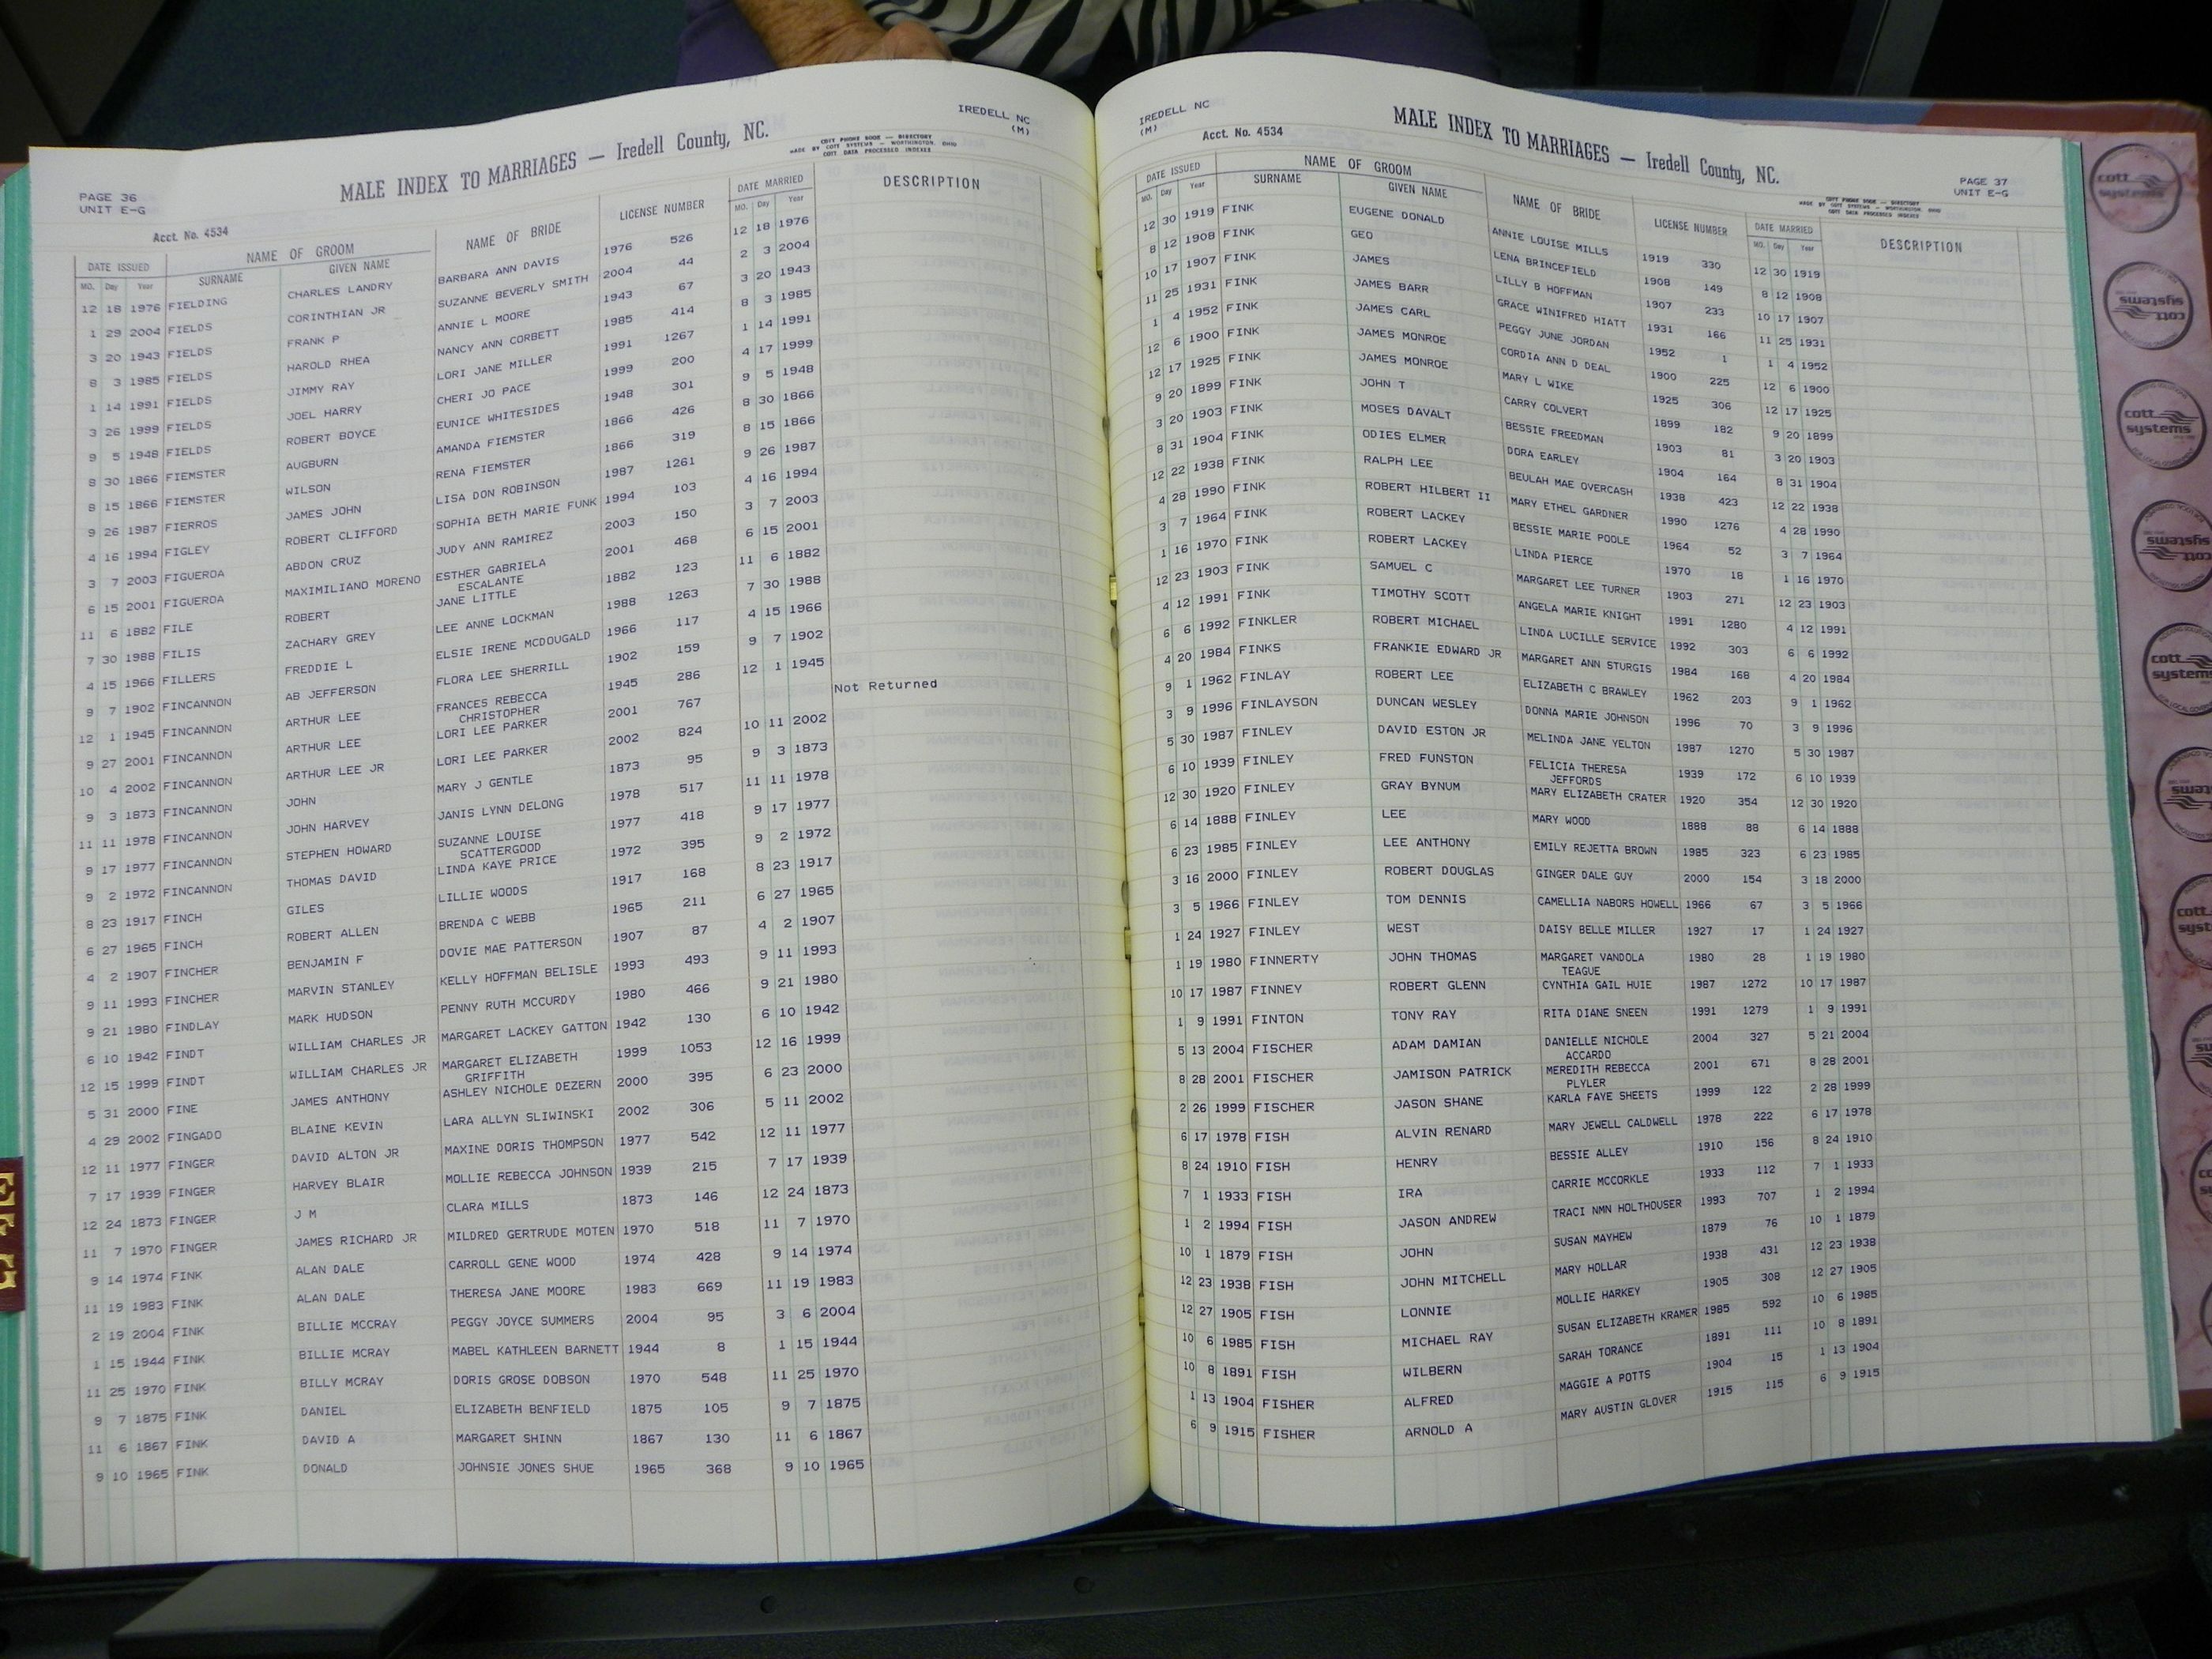 PAGE 36
UNIT E-G
MALE INDEX TO MARRIAGES — Iredell County, NC.
IREDELL NC
(M)
COTT PHONE BOOK — DIRECTORY
MADE BY COTT SYSTEMS — WORTHINGTON, OHIO
COTT DATA PROCESSED INDEXES
Acct. No. 4534
DATE ISSUED NAME OF GROOM NAME OF BRIDE LICENSE NUMBER DATE MARRIED DESCRIPTION
MO. Day Year SURNAME GIVEN NAME MO. Day Year
12 18 1976 FIELDING CHARLES LANDRY BARBARA ANN DAVIS 1976 526 12 18 1976
1 29 2004 FIELDS CORINTHIAN JR SUZANNE BEVERLY SMITH 2004 44 2 3 2004
3 20 1943 FIELDS FRANK P ANNIE L MOORE 1943 67 3 20 1943
8 3 1985 FIELDS HAROLD RHEA NANCY ANN CORBETT 1985 414 8 3 1985
1 14 1991 FIELDS JIMMY RAY LORI JANE MILLER 1991 1267 1 14 1991
3 26 1999 FIELDS JOEL HARRY CHERI JO PACE 1999 200 4 17 1999
9 5 1948 FIELDS ROBERT BOYCE EUNICE WHITESIDES 1948 301 9 5 1948
8 30 1866 FIEMSTER AUGBURN AMANDA FIEMSTER 1866 426 8 30 1866
8 15 1866 FIEMSTER WILSON RENA FIEMSTER 1866 319 8 15 1866
9 26 1987 FIERROS JAMES JOHN LISA DON ROBINSON 1987 1261 9 26 1987
4 16 1994 FIGLEY ROBERT CLIFFORD SOPHIA BETH MARIE FUNK 1994 103 4 16 1994
3 7 2003 FIGUEROA ABDON CRUZ JUDY ANN RAMIREZ 2003 150 3 7 2003
6 15 2001 FIGUEROA MAXIMILIANO MORENO ESTHER GABRIELA 2001 468 6 15 2001
ESCALANTE
11 6 1882 FILE ROBERT JANE LITTLE 1882 123 11 6 1882
7 30 1988 FILIS ZACHARY GREY LEE ANNE LOCKMAN 1988 1263 7 30 1988
4 15 1966 FILLERS FREDDIE L ELSIE IRENE MCDOUGALD 1966 117 4 15 1966
9 7 1902 FINCANNON AB JEFFERSON FLORA LEE SHERRILL 1902 159 9 7 1902
12 1 1945 FINCANNON ARTHUR LEE FRANCES REBECCA 1945 286 12 1 1945
CHRISTOPHER
9 27 2001 FINCANNON ARTHUR LEE LORI LEE PARKER 2001 767 Not Returned
10 4 2002 FINCANNON ARTHUR LEE JR LORI LEE PARKER 2002 824 10 11 2002
9 3 1873 FINCANNON JOHN MARY J GENTLE 1873 95 9 3 1873
11 11 1978 FINCANNON JOHN HARVEY JANIS LYNN DELONG 1978 517 11 11 1978
9 17 1977 FINCANNON STEPHEN HOWARD SUZANNE LOUISE 1977 418 9 17 1977
SCATTERGOOD
9 2 1972 FINCANNON THOMAS DAVID LINDA KAYE PRICE 1972 395 9 2 1972
8 23 1917 FINCH GILES LILLIE WOODS 1917 168 8 23 1917
6 27 1965 FINCH ROBERT ALLEN BRENDA C WEBB 1965 211 6 27 1965
4 2 1907 FINCHER BENJAMIN F DOVIE MAE PATTERSON 1907 87 4 2 1907
9 11 1993 FINCHER MARVIN STANLEY KELLY HOFFMAN BELISLE 1993 493 9 11 1993
9 21 1980 FINDLAY MARK HUDSON PENNY RUTH MCCURDY 1980 466 9 21 1980
6 10 1942 FINDT WILLIAM CHARLES JR MARGARET LACKEY GATTON 1942 130 6 10 1942
12 15 1999 FINDT WILLIAM CHARLES JR MARGARET ELIZABETH 1999 1053 12 16 1999
GRIFFITH
5 31 2000 FINE JAMES ANTHONY ASHLEY NICHOLE DEZERN 2000 395 6 23 2000
4 29 2002 FINGADO BLAINE KEVIN LARA ALLYN SLIWINSKI 2002 306 5 11 2002
12 11 1977 FINGER DAVID ALTON JR MAXINE DORIS THOMPSON 1977 542 12 11 1977
7 17 1939 FINGER HARVEY BLAIR MOLLIE REBECCA JOHNSON 1939 215 7 17 1939
12 24 1873 FINGER J M CLARA MILLS 1873 146 12 24 1873
11 7 1970 FINGER JAMES RICHARD JR MILDRED GERTRUDE MOTEN 1970 518 11 7 1970
9 14 1974 FINK ALAN DALE CARROLL GENE WOOD 1974 428 9 14 1974
11 19 1983 FINK ALAN DALE THERESA JANE MOORE 1983 669 11 19 1983
2 19 2004 FINK BILLIE MCCRAY PEGGY JOYCE SUMMERS 2004 95 3 6 2004
1 15 1944 FINK BILLIE MCRAY MABEL KATHLEEN BARNETT 1944 8 1 15 1944
11 25 1970 FINK BILLY MCRAY DORIS GROSE DOBSON 1970 548 11 25 1970
9 7 1875 FINK DANIEL ELIZABETH BENFIELD 1875 105 9 7 1875
11 6 1867 FINK DAVID A MARGARET SHINN 1867 130 11 6 1867
9 10 1965 FINK DONALD JOHNSIE JONES SHUE 1965 368 9 10 1965
E-F-G
IREDELL NC
(M)
Acct. No. 4534
MALE INDEX TO MARRIAGES — Iredell County, NC.
PAGE 37
UNIT E-G
COTT PHONE BOOK — DIRECTORY
MADE BY COTT SYSTEMS — WORTHINGTON, OHIO
COTT DATA PROCESSED INDEXES
DATE ISSUED NAME OF GROOM NAME OF BRIDE LICENSE NUMBER DATE MARRIED DESCRIPTION
MO. Day Year SURNAME GIVEN NAME MO. Day Year
12 30 1919 FINK EUGENE DONALD ANNIE LOUISE MILLS 1919 330 12 30 1919
8 12 1908 FINK GEO LENA BRINCEFIELD 1908 149 8 12 1908
10 17 1907 FINK JAMES LILLY B HOFFMAN 1907 233 10 17 1907
11 25 1931 FINK JAMES BARR GRACE WINIFRED HIATT 1931 166 11 25 1931
1 4 1952 FINK JAMES CARL PEGGY JUNE JORDAN 1952 1 1 4 1952
12 6 1900 FINK JAMES MONROE CORDIA ANN D DEAL 1900 225 12 6 1900
12 17 1925 FINK JAMES MONROE MARY L WIKE 1925 306 12 17 1925
9 20 1899 FINK JOHN T CARRY COLVERT 1899 182 9 20 1899
3 20 1903 FINK MOSES DAVALT BESSIE FREEDMAN 1903 81 3 20 1903
8 31 1904 FINK ODIES ELMER DORA EARLEY 1904 164 8 31 1904
12 22 1938 FINK RALPH LEE BEULAH MAE OVERCASH 1938 423 12 22 1938
4 28 1990 FINK ROBERT HILBERT II MARY ETHEL GARDNER 1990 1276 4 28 1990
3 7 1964 FINK ROBERT LACKEY BESSIE MARIE POOLE 1964 52 3 7 1964
1 16 1970 FINK ROBERT LACKEY LINDA PIERCE 1970 18 1 16 1970
12 23 1903 FINK SAMUEL C MARGARET LEE TURNER 1903 271 12 23 1903
4 12 1991 FINK TIMOTHY SCOTT ANGELA MARIE KNIGHT 1991 1280 4 12 1991
6 6 1992 FINKLER ROBERT MICHAEL LINDA LUCILLE SERVICE 1992 303 6 6 1992
4 20 1984 FINKS FRANKIE EDWARD JR MARGARET ANN STURGIS 1984 168 4 20 1984
9 1 1962 FINLAY ROBERT LEE ELIZABETH C BRAWLEY 1962 203 9 1 1962
3 9 1996 FINLAYSON DUNCAN WESLEY DONNA MARIE JOHNSON 1996 70 3 9 1996
5 30 1987 FINLEY DAVID ESTON JR MELINDA JANE YELTON 1987 1270 5 30 1987
6 10 1939 FINLEY FRED FUNSTON FELICIA THERESA 1939 172 6 10 1939
JEFFORDS
12 30 1920 FINLEY GRAY BYNUM MARY ELIZABETH CRATER 1920 354 12 30 1920
6 14 1888 FINLEY LEE MARY WOOD 1888 88 6 14 1888
6 23 1985 FINLEY LEE ANTHONY EMILY REJETTA BROWN 1985 323 6 23 1985
3 16 2000 FINLEY ROBERT DOUGLAS GINGER DALE GUY 2000 154 3 18 2000
3 5 1966 FINLEY TOM DENNIS CAMELLIA NABORS HOWELL 1966 67 3 5 1966
1 24 1927 FINLEY WEST DAISY BELLE MILLER 1927 17 1 24 1927
1 19 1980 FINNERTY JOHN THOMAS MARGARET VANDOLA 1980 28 1 19 1980
TEAGUE
10 17 1987 FINNEY ROBERT GLENN CYNTHIA GAIL HUIE 1987 1272 10 17 1987
1 9 1991 FINTON TONY RAY RITA DIANE SNEEN 1991 1279 1 9 1991
5 13 2004 FISCHER ADAM DAMIAN DANIELLE NICHOLE 2004 327 5 21 2004
ACCARDO
8 28 2001 FISCHER JAMISON PATRICK MEREDITH REBECCA 2001 671 8 28 2001
PLYLER
2 26 1999 FISCHER JASON SHANE KARLA FAYE SHEETS 1999 122 2 28 1999
6 17 1978 FISH ALVIN RENARD MARY JEWELL CALDWELL 1978 222 6 17 1978
8 24 1910 FISH HENRY BESSIE ALLEY 1910 156 8 24 1910
7 1 1933 FISH IRA CARRIE MCCORKLE 1933 112 7 1 1933
1 2 1994 FISH JASON ANDREW TRACI NMN HOLTHOUSER 1993 707 1 2 1994
10 1 1879 FISH JOHN SUSAN MAYHEW 1879 76 10 1 1879
12 23 1938 FISH JOHN MITCHELL MARY HOLLAR 1938 431 12 23 1938
12 27 1905 FISH LONNIE MOLLIE HARKEY 1905 308 12 27 1905
10 6 1985 FISH MICHAEL RAY SUSAN ELIZABETH KRAMER 1985 592 10 6 1985
10 8 1891 FISH WILBERN SARAH TORANCE 1891 111 10 8 1891
1 13 1904 FISHER ALFRED MAGGIE A POTTS 1904 15 1 13 1904
6 9 1915 FISHER ARNOLD A MARY AUSTIN GLOVER 1915 115 6 9 1915
cott
systems
cott
systems
cott
systems
cott
systems
cott
systems